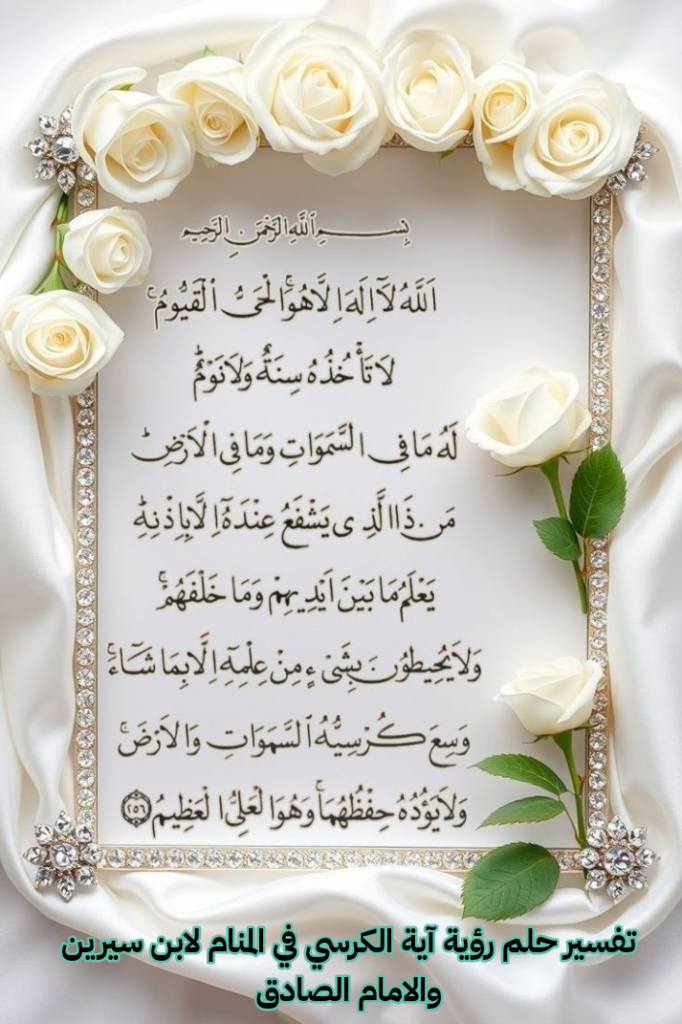 بِسْمِ اللَّهِ الرَّحْمَنِ الرَّحِيمِ
اَللَّهُ لَآ اِلَهَ اِلَّا هُوَۚ اَلْحَىُّ الْقَيُّومُۚ
لَا تَأْخُذُهُ سِنَةٌ وَلَا نَوْمٌۜ
لَهُ مَا فِى السَّمَوَاتِ وَمَا فِى الْاَرْضِۜ
مَنْ ذَا الَّذِى يَشْفَعُ عِنْدَهُٓ اِلَّا بِاِذْنِهِۜ
يَعْلَمُ مَا بَيْنَ اَيْدِيهِمْ وَمَا خَلْفَهُمْۚ
وَلَا يُحِيطُونَ بِشَىْءٍ مِنْ عِلْمِهِٓ اِلَّا بِمَا شَآءَۚ
وَسِعَ كُرْسِيُّهُ السَّمَوَاتِ وَالْاَرْضَۚ
وَلَا يَؤُدُهُ حِفْظُهُمَاۚ وَهُوَ الْعَلِىُّ الْعَظِيمُ ﴿٢٥٦﴾
تفسير حلم رؤية آية الكرسي في المنام لابن سيرين
والامام الصادق